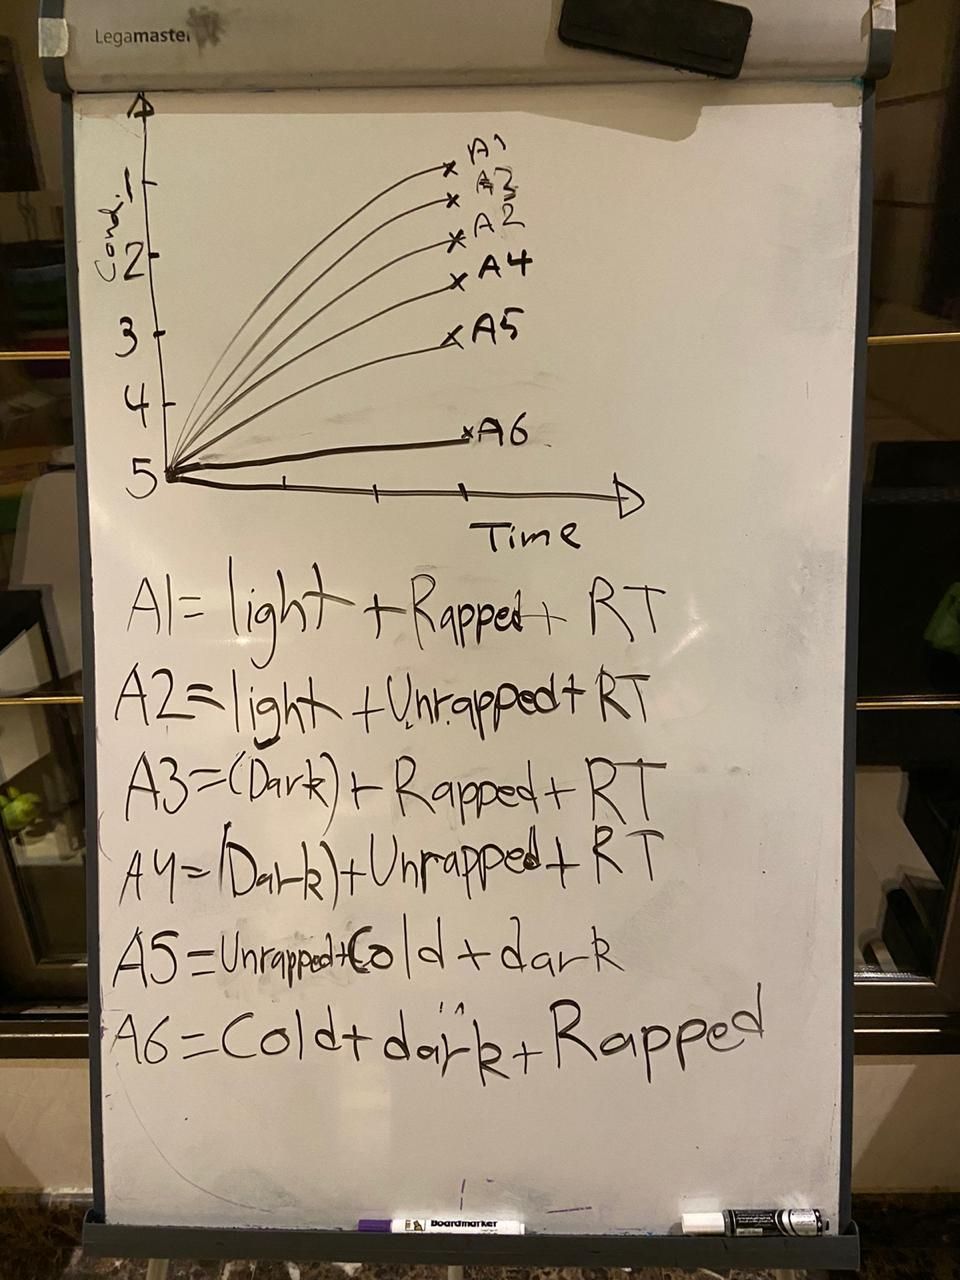 Legamaster
A1
1
A3
Cond.
A2
2
A4
3
A5
4
A6
5
Time
A1= light + Rapped + RT
A2= light + Unrapped + RT
A3=(Dark) + Rapped + RT
A4=(Dark)+Unrapped + RT
A5=Unrapped+Cold + dark
A6=Cold+dark+Rapped
Boardmarker